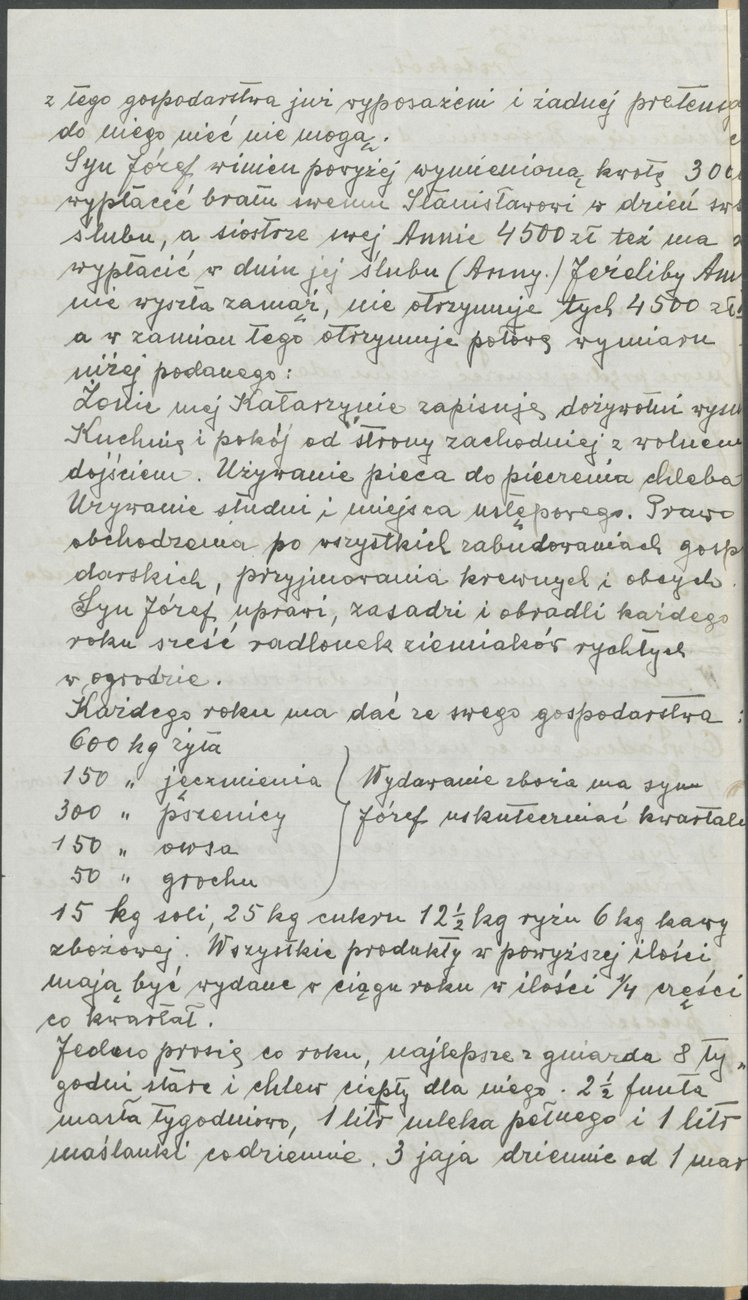 z tego gospodarstwa już wyposażeni i żadnej pretensj
do niego mieć nie mogą.
Syn Józef winien powyżej wymienioną kwotę 300
wypłacić bratu swemu Stanisławowi w dzień sw
ślubu, a siostrze swej Annie 4500 zł też ma
wypłacić w dniu jej ślubu (Anny.) Jeżeliby Ann
nie wyszła zamąż, nie otrzymuje tych 4500 zł
a w zamian tego otrzymuje połowę wymiaru
niżej podanego:
Żonie mej Katarzynie zapisuję dożywotni wym
Kuchnię i pokój od strony zachodniej z wolnem
dojściem. Używanie pieca do pieczenia chleba
Używanie studni i miejsca ustępowego. Prawo
obchodzenia po wszystkich zabudowaniach gosp
darskich, przyjmowania krewnych i obcych.
Syn Józef uprawi, zasadzi i obradli każdego
roku sześć radlonek ziemiaków rychłych
w ogrodzie.
Każdego roku ma dać ze swego gospodarstwa :
600 kg żyta
150 " jęczmienia
300 " pszenicy
150 " owsa
50 " grochu
Wydawanie zboża ma syn
Józef uskuteczniać kwartaln
15 kg soli, 25 kg cukru 12 ½ kg ryżu 6 kg kawy
zbożowej. Wszystkie produkty w powyższej ilości
mają być wydane w ciągu roku w ilości ¼ części
co kwartał.
Jedno prosię co roku, najlepsze z gniazda 8 ty„
godni stare i chlew ciepły dla niego. 2 ½ funta
masła tygodniowo, 1 litr mleka pełnego i 1 litr
maślanki codziennie. 3 jaja dziennie od 1 mar